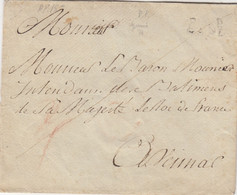 Monsieur
Monsieur Le Baron Mounier
Intendant des Batimens
de Sa Majesté Le Roi de France
Weimar